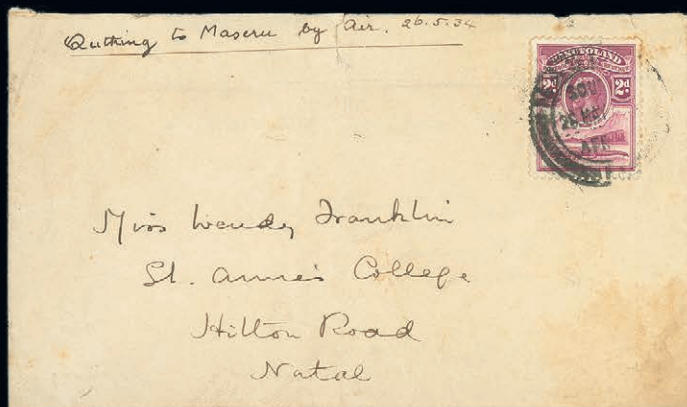 Quthing to Maseru by Air. 26.5.34
BASUTOLAND
2d 2d
Miss Wendy Franklin
St. Anne's College
Hilton Road
Natal